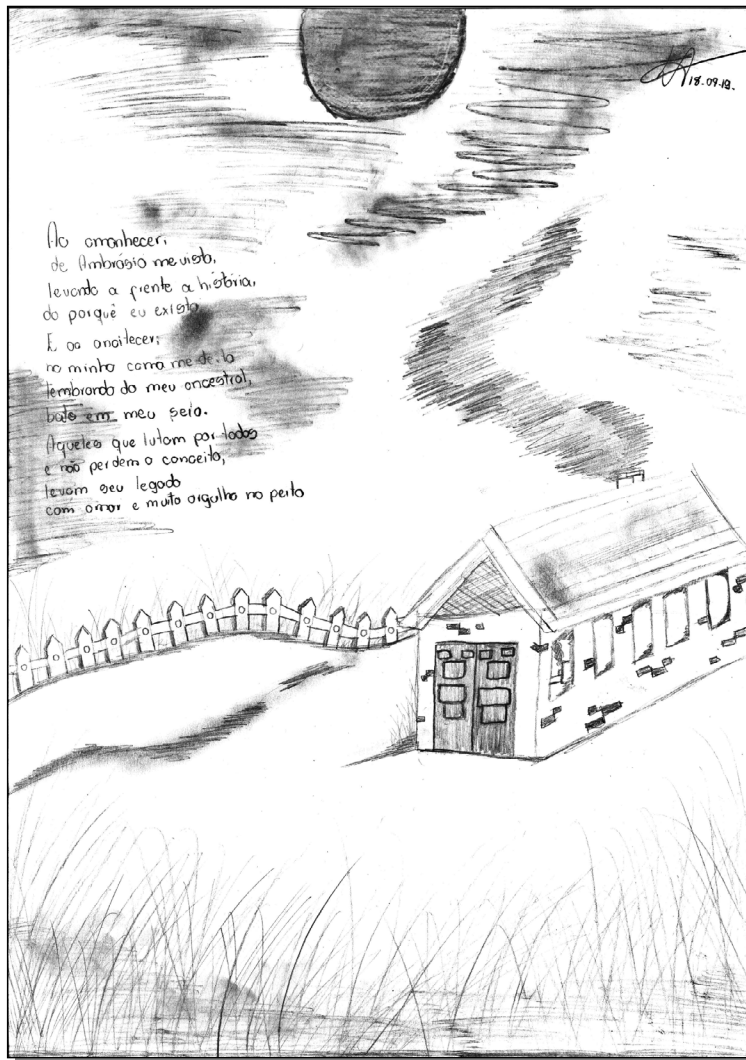 18.09.19.
Ao amanhecer,
de Ambrósio me visto,
levando a frente a história,
do porquê eu existo
E ao anoitecer,
na minha cama me deito
lembrando do meu ancestral,
bate em meu seio.
Aqueles que lutam por todos
e não perdem o conceito,
levam seu legado
com amor e muito orgulho no peito